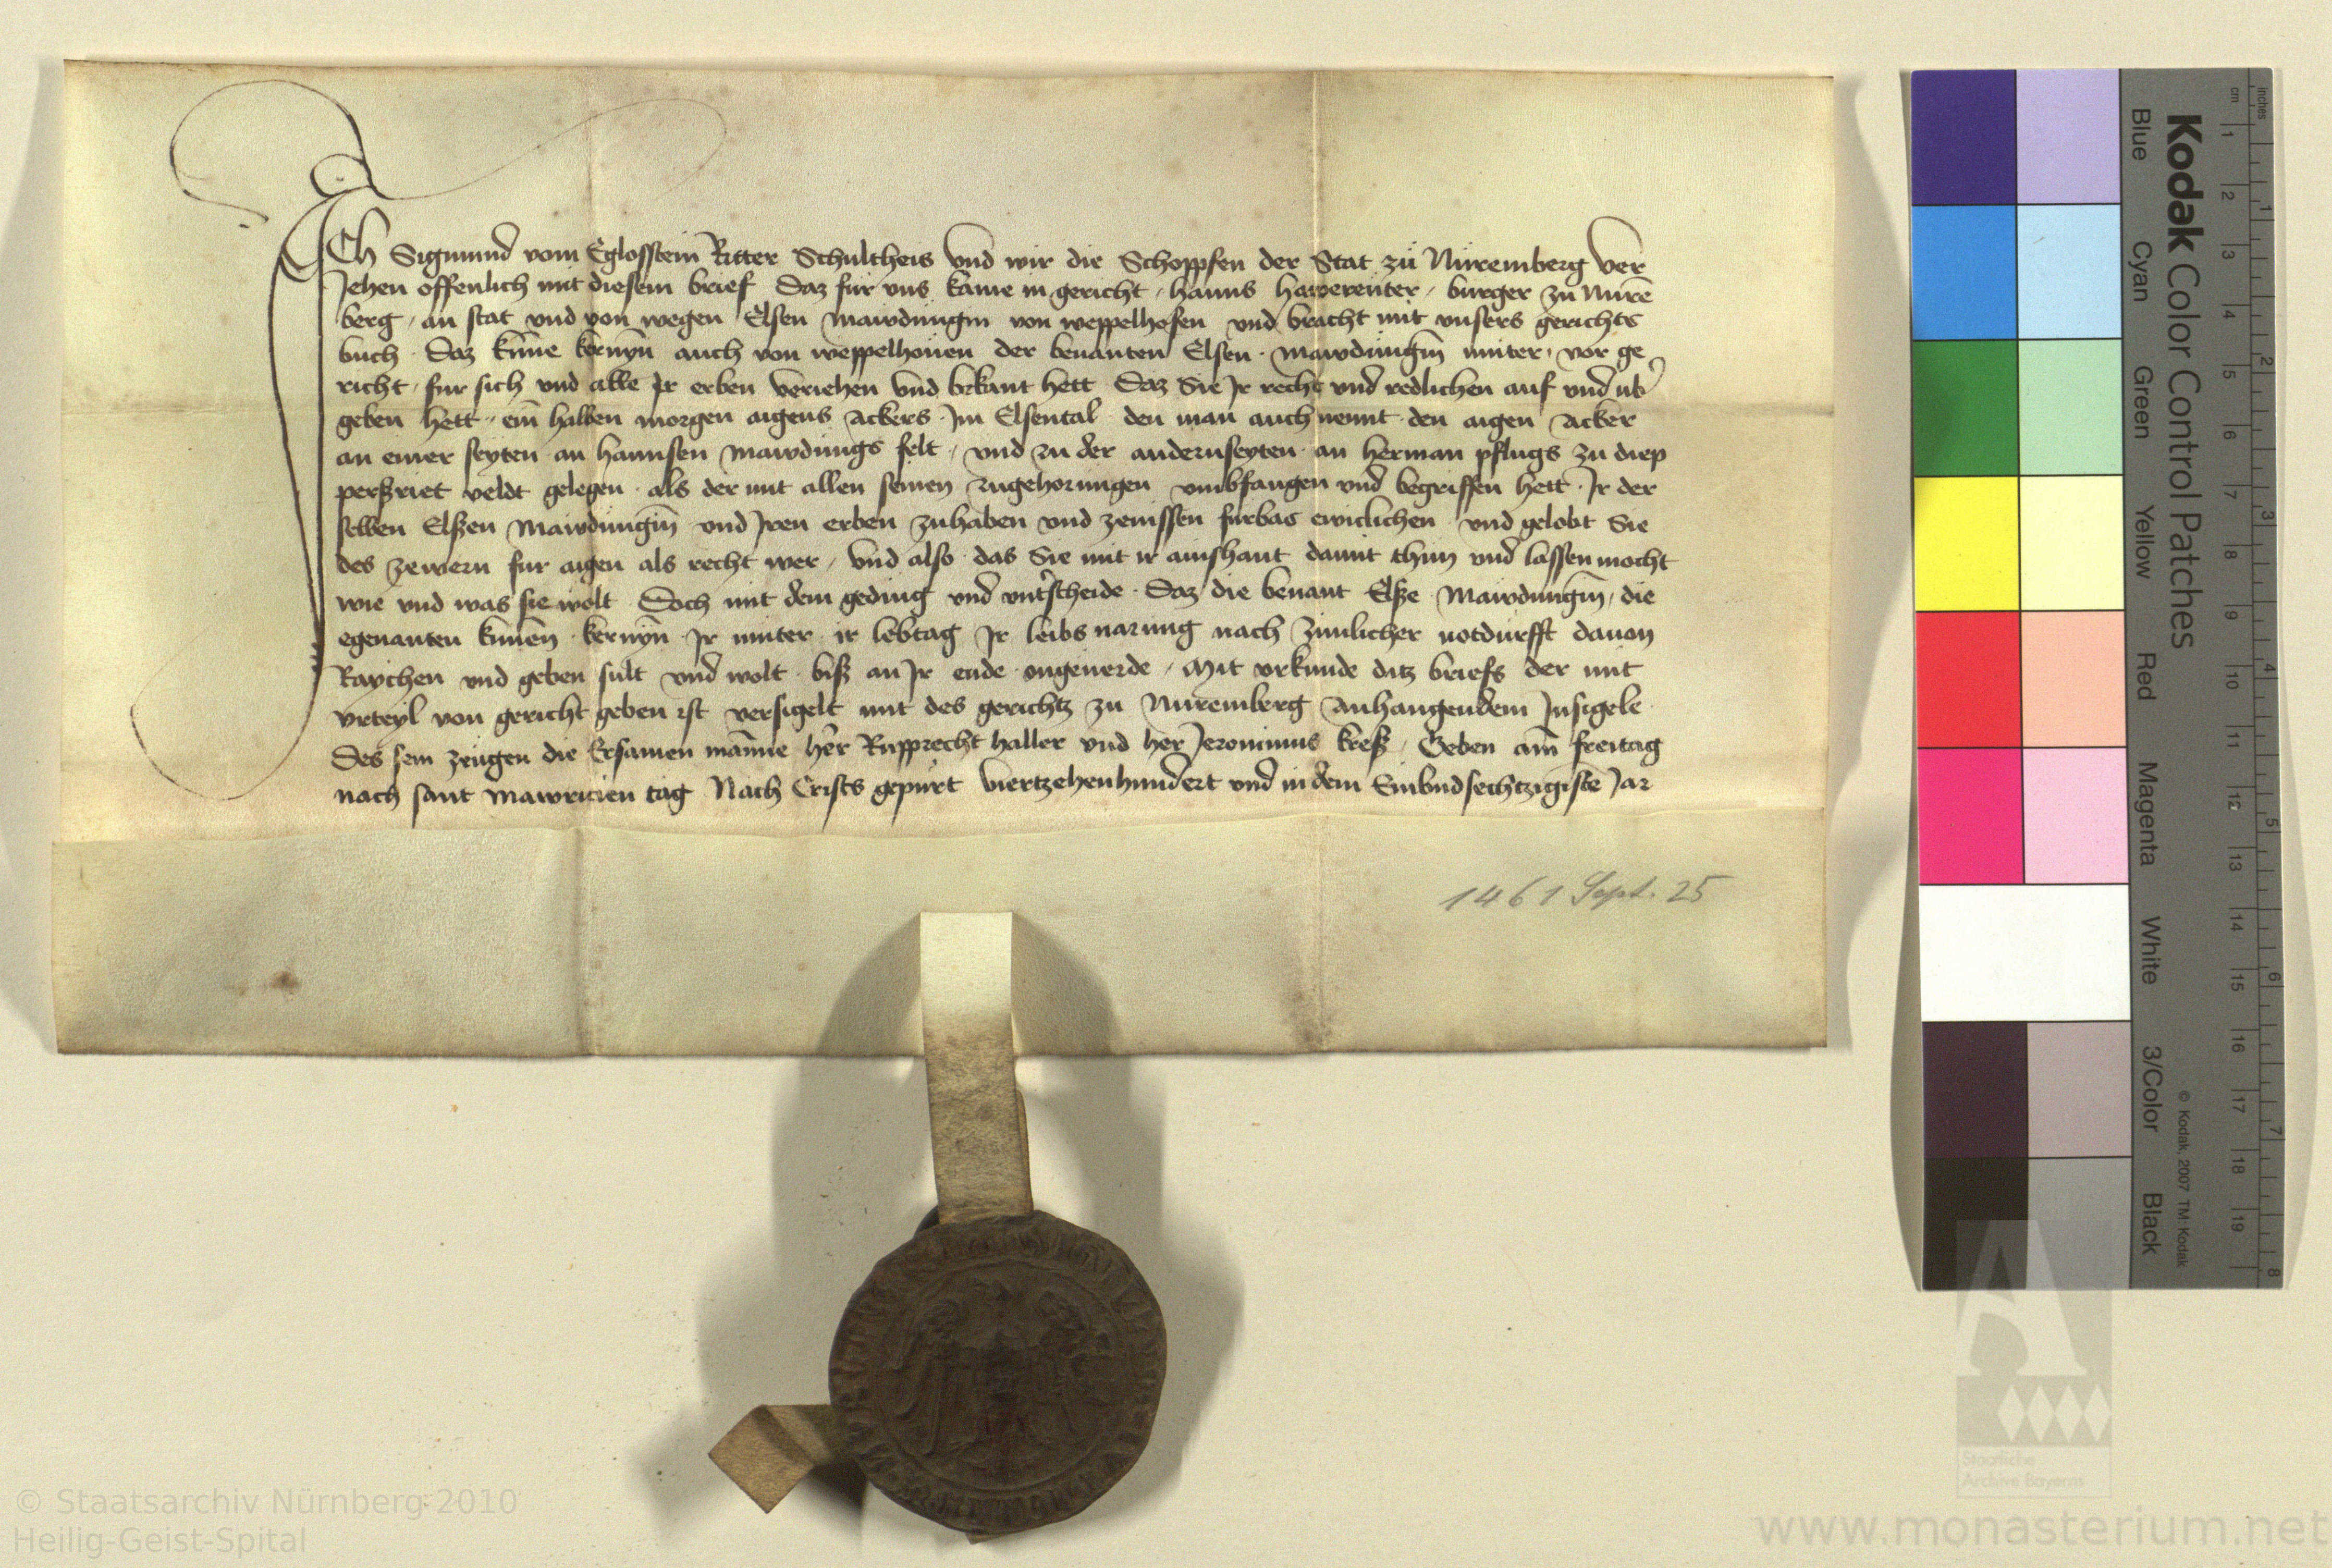 ICh Sigmund vom Eglosstein Ritter Schultheis Vnd wir die Schoppfen der Stat zů Nůremberg Ver
Jehen offenlich mit diesem brief Daz fur vns kame in gericht hanns hawerenter burger zu Nurē
berg an stat vnd von wegen Elsen Mawdungin von weppelhofen vnd bracht mit vnsers gerichts
buch Daz kūne kernyn auch von weppelhouen der benanten Elsen Mawdungin muter vor ge
richt fur sich vnd alle Jr erben veriehen vnd bekant hett Daz Sie Jr recht vnd redlichen auf vnd ub
geben hett ein halben morgen aigens Ackers Jm Elsental den man auch nennt den aigen Acker
an einer seyten an hannsen Mawdungs felt vnd zu der andernseyten an herman pflugs zu diep
perßriet veldt gelegen als der mit allen seinen zugehorungen vmbfangen vnd begriffen hett Jr der
selben Elßen Mawdungin vnd Jren erben zuhaben vnd zenissen furbas ewiclichen vnd gelobt Sie
des zewern fur aigen als recht wer vnd also das Sie mit ir ainshant damit thun vnd lassen mocht
wie vnd was sie wolt Doch mit dem geding vnd vnterscheide Daz die benant Elße Mawdungin die
egenanten kunen kernyn Jr muter ir lebtag Jr leibs narung nach zimlicher notdurfft dauon
Raychen vnd geben sult vnd wolt biß an Jr ende ongeuerde Mit vrkunde ditz briefs der mit
vrteyl von gericht geben ist versigelt mit des gerichtz zu Nuremberg Anhangendem Jnsigele
Des sein zeugen die Ersamen manne her Rupprecht haller vnd her Jeronimus kreß Geben am freitag
nach sant Mawricien tag Nach Crists gepurt viertzehenhundert vnd in dem Einvndsechtzigistē Jar
1461 Sept. 25
Kodak Color Control Patches
Blue Cyan Green Yellow Red Magenta White 3/Color Black
© Kodak, 2007 TM: Kodak
cm 1 2 3 4 5 6 7 8 9 10 11 12 13 14 15 16 17 18 19
inches 1 2 3 4 5 6 7 8
Staatliche
Archive Bayerns
© Staatsarchiv Nürnberg 2010
Heilig-Geist-Spital
www.monasterium.net